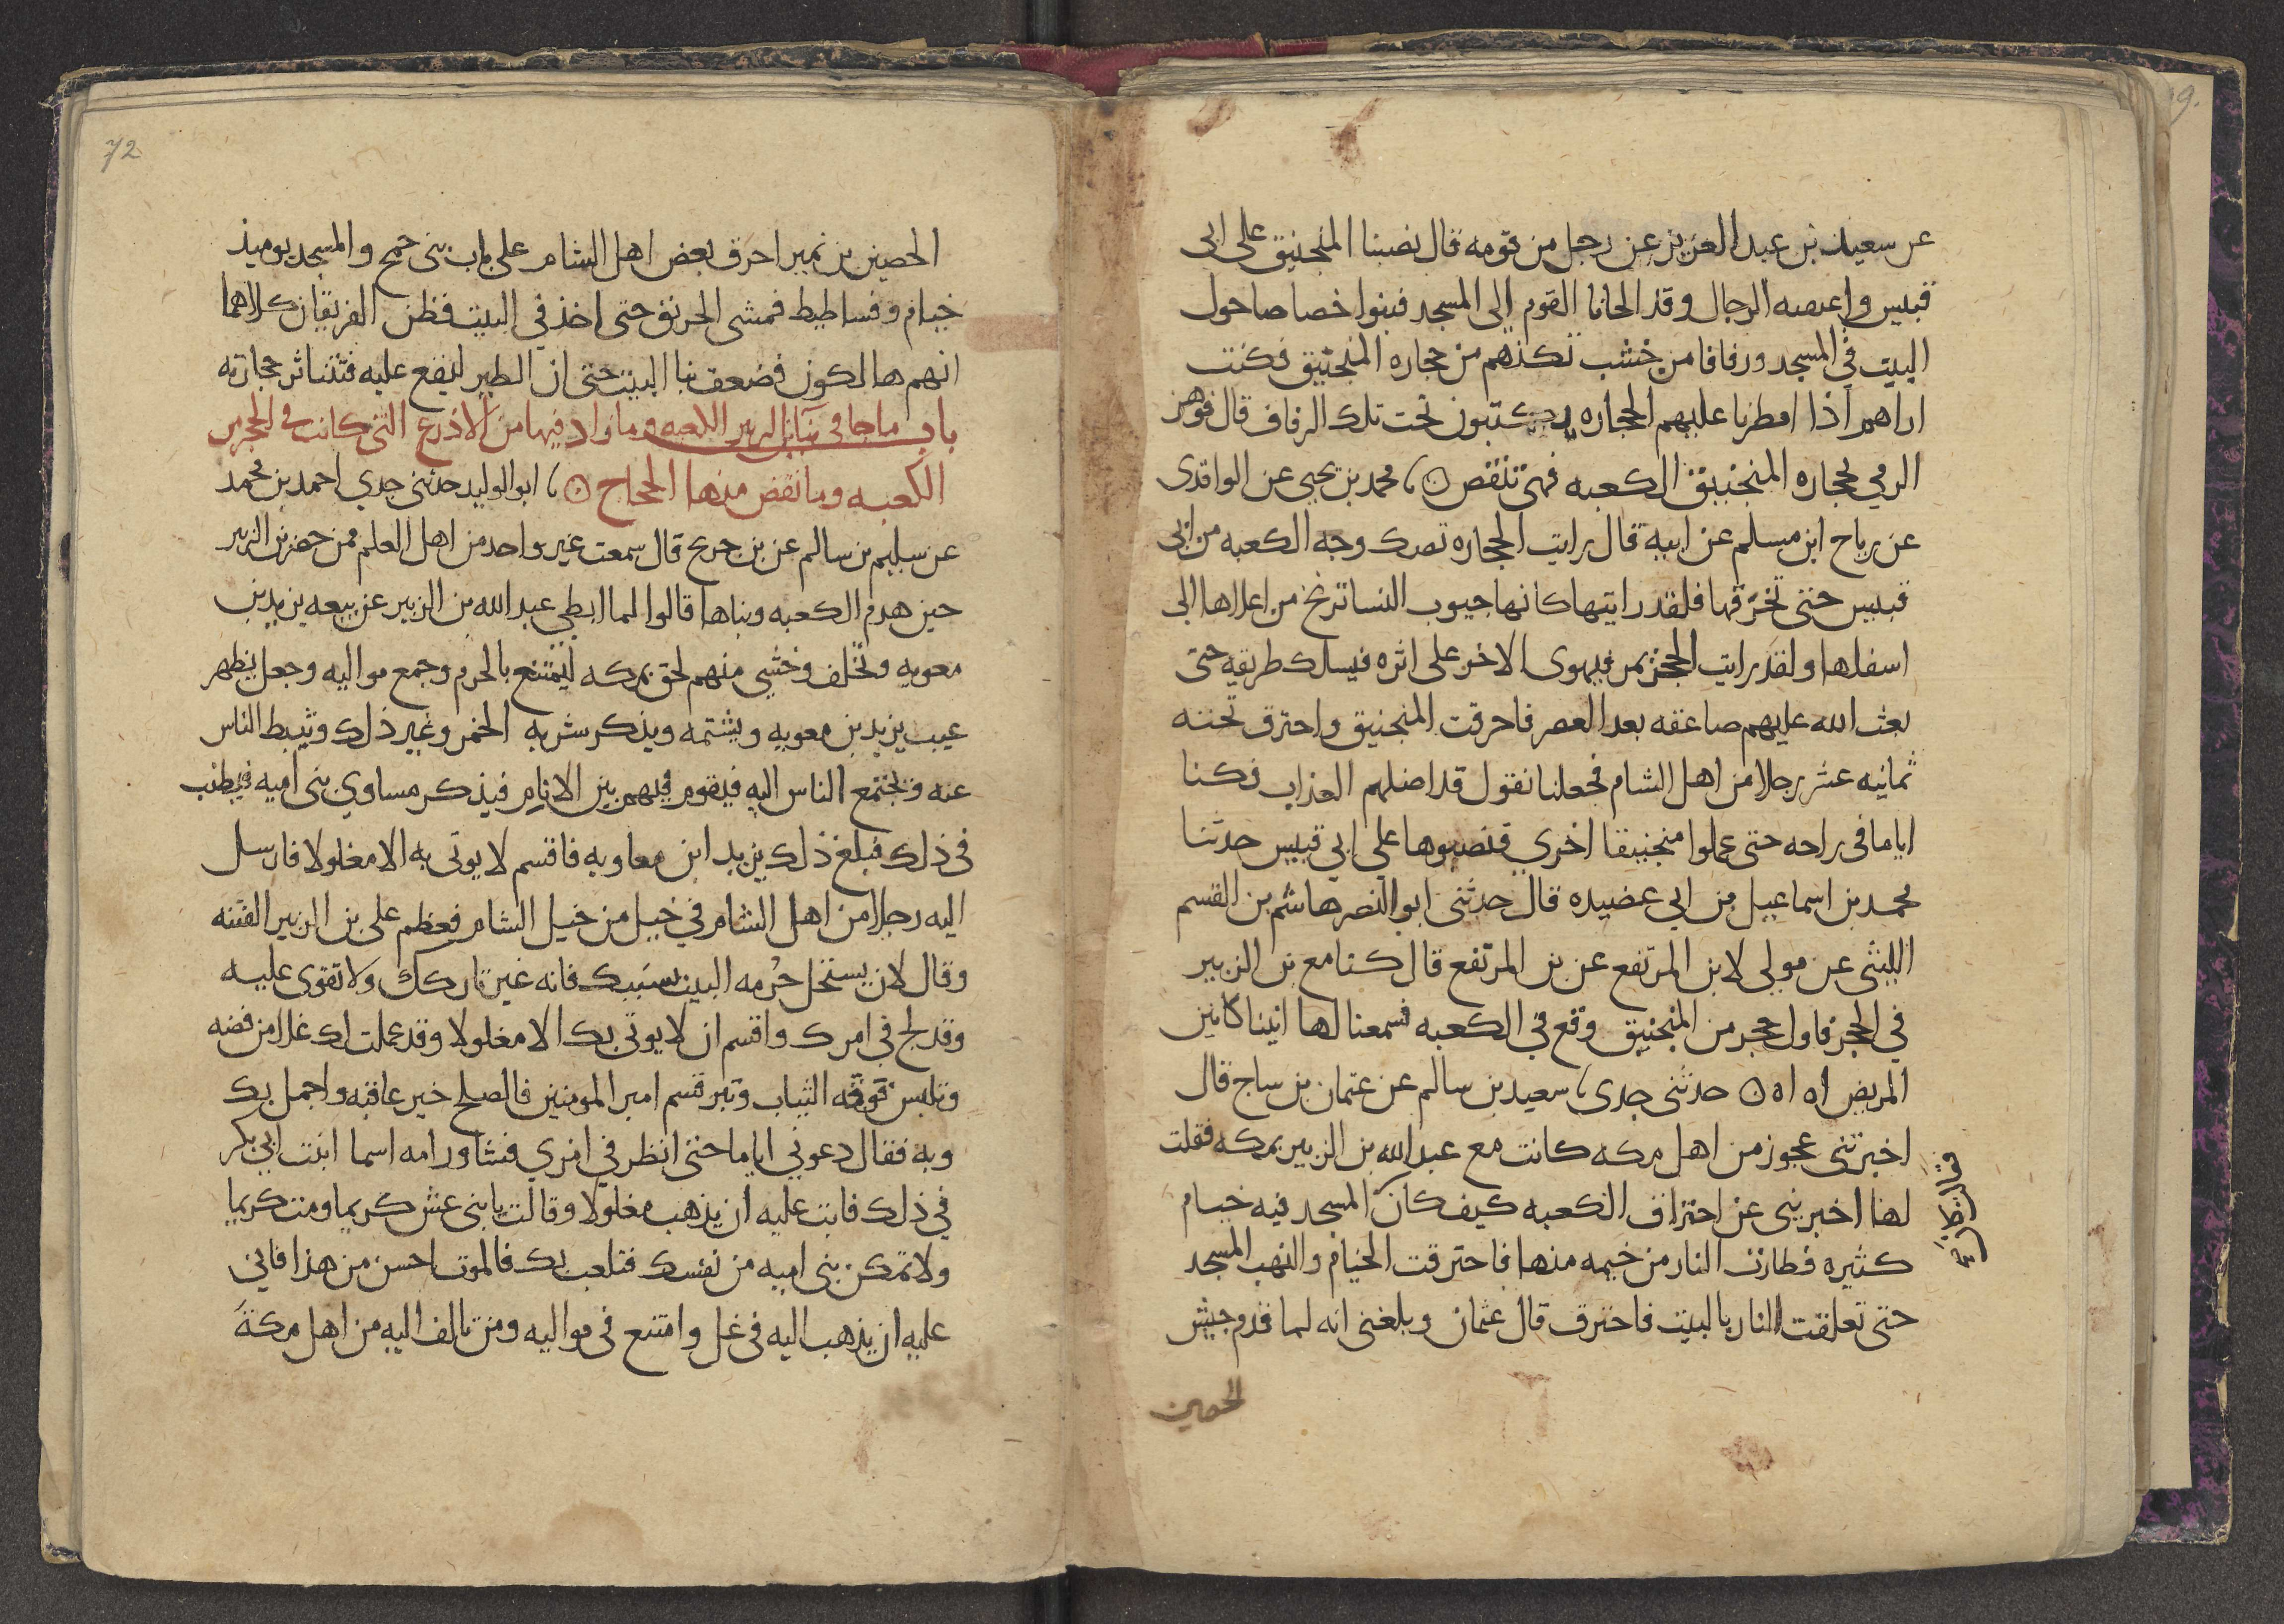 عن سعيد بن عبد العزيز عن رجل من قومه قال نصبنا المنجنيق على ابى
قبيس واعتصه الرجال وقد الجانا القوم الى المسجد فبنوا خصاصا حول
البيت في المسجد ورفافا من خشب تكنهم من حجاره المنجنيق فكنت
اراهم اذا امطرنا عليهم الحجاره يكتبون تحت تلك الرفاف قال فوهن
الرمي بحجاره المنجنيق الكعبه فهي تنقض ۞ محمد بن يحيى عن الواقدى
عن رباح ابن مسلم عن ابيه قال رايت الحجاره تصك وجه الكعبه من ابى
قبيس حتى تخرقها فلقد رايتها كانها جيوب النسا ترتج من اعلاها الى
اسفلها ولقد رايت الحجر يمر فيهوى الاخر على اثره فيسلك طريقه حتى
بعث الله عليهم صاعقه بعد العصر فاحرقت المنجنيق واحترق تحته
ثمانيه عشر رجلا من اهل الشام فجعلنا نقول قد اضلهم العذاب فكنا
اياما فى راحه حتى عملوا منجنيقا اخري فنصبوها على ابي قبيس حدثنا
محمد بن اسماعيل بن ابي عضيده قال حدثنى ابو النضر هاشم بن القسم
الليثى عن مولى لابن المرتفع عن بن المرتفع قال كنا مع بن الزبير
في الحجر فاول حجر من المنجنيق وقع في الكعبه فسمعنا لها انينا كانين
المريض اه اه ۞ حدثنى جدى، سعيد بن سالم عن عثمان بن ساج قال
اخبرتنى عجوز من اهل مكه كانت مع عبد الله بن الزبير بمكه فقلت
لها اخبرينى عن احتراق الكعبه كيف كان المسجد فيه خيام
كثيره فطارت النار من خيمه منها فاحترقت الخيام والتهب المسجد
حتى تعلقت النار بالبيت فاحترق قال عثمان وبلغنى انه لما قدم جيش
الحصين
72
الحصين بن نمير احرق بعض اهل الشام على باب بنى جمح والمسجد يوميذ
خيام وفساطيط فمشى الحريق حتى اخذ في البيت فظن الفريقان كلاهما
انهم هالكون فضعف بنا البيت حتى ان الطير ليقع عليه فتتناثر حجارته
باب ما جا فى بنا بن الزبير الكعبه وما زاد فيها من الاذرع التى كانت فى الحجر من
الكعبه وما نقض منها الحجاج ۞، ابو الوليد حدثنى جدي احمد بن محمد
عن سليم بن سالم عن بن جريج قال سمعت غير واحد من اهل العلم ممن حضر بن الزبير
حين هدم الكعبه وبناها قالوا لما ابطي عبد الله بن الزبير عن بيعه يزيد بن
معويه وتخلف وخشي منهم لحق بمكه ليمتنع بالحرم وجمع مواليه وجعل يظهر
عيب يزيد بن معويه ويشتمه ويذكر شربه الخمر وغير ذلك ويثبط الناس
عنه ويجتمع الناس اليه فيقوم فيهم بين الايام فيذكر مساوي بنى اميه فيطنب
فى ذلك فبلغ ذلك يزيد ابن معاويه فاقسم لا يوتى به الا مغلولا فارسل
اليه رجلا من اهل الشام في خيل من خيل الشام فعظم على بن الزبير الفتنه
وقال لان يستحل حرمه البيت بسببك فانه غير تاركك ولا تقوى عليه
وقد لج فى امرك واقسم ان لا يوتى بك الا مغلولا وقد عملت لك غلا من فضه
وتلبس فوقه الثياب وتبر قسم امير المومنين فالصلح خير عاقبه واجمل بك
وبه فقال دعونى اياما حتى انظر في امري فشاور امه اسما ابنت ابي بكر
في ذلك فابت عليه ان يذهب مغلولا وقالت يا بنى عش كريما ومت كريما
ولا تمكن بنى اميه من نفسك فتلعب بك فالموت احسن من هذا فابي
عليه ان يذهب اليه فى غل وامتنع فى مواليه ومن تالف اليه من اهل مكة